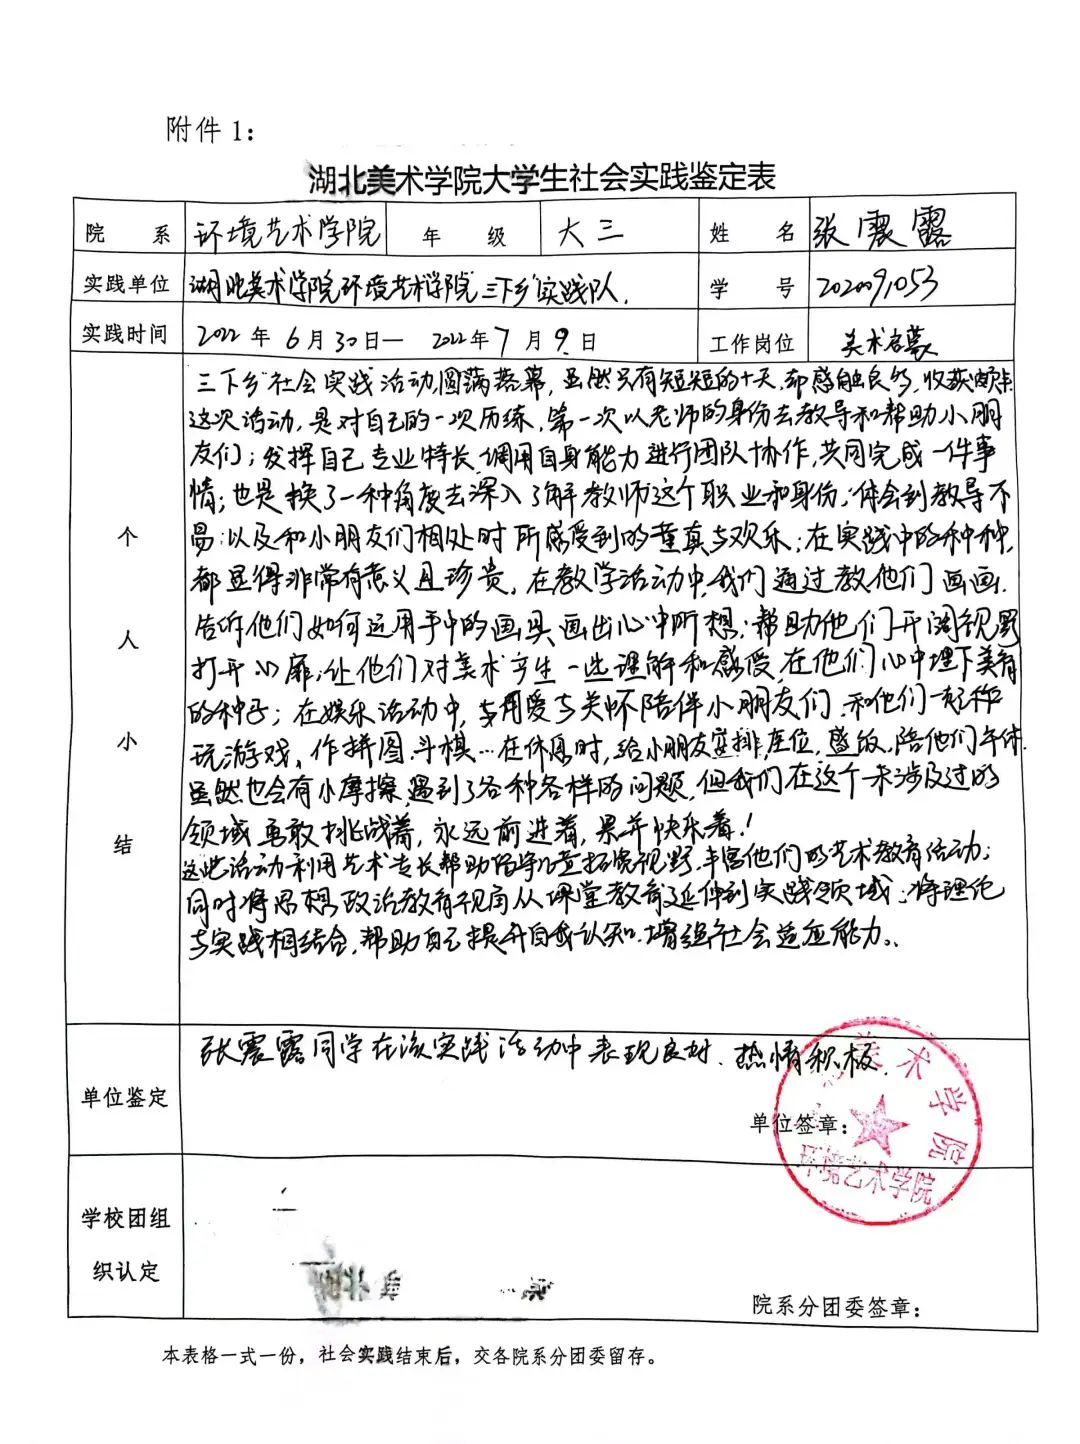 附件 1：
湖北美术学院大学生社会实践鉴定表
院 系 环境艺术学院 年 级 大三 姓 名 张震露
实践单位 湖北美术学院环境艺术学院三下乡实践队. 学 号 2020091053
实践时间 2022年6月30日— 2022年7月9日 工作岗位 美术启蒙
个人小结
三下乡社会实践活动圆满落幕，虽然只有短短的十天，却感触良多，收获颇丰
这次活动，是对自己的一次历练，第一次以老师的身份去教导和帮助小朋
友们；发挥自己专业特长，调用自身能力进行团队协作，共同完成一件事
情；也是换了一种角度去深入了解教师这个职业和身份，体会到教导不
易；以及和小朋友们相处时所感受到的童真与欢乐；在实践中的种种，
都显得非常有意义且珍贵。在教学活动中，我们通过教他们画画，
告诉他们如何运用手中的画具画出心中所想，帮助他们开阔视野
打开心扉，让他们对美术产生一些理解和感受，在他们心中埋下美育
的种子；在娱乐活动中，用爱与关怀陪伴小朋友们，和他们一起
玩游戏、作拼图、斗棋…在休息时，给小朋友安排座位，盛饭，陪他们午休.
虽然也会有小摩擦，遇到了各种各样的问题，但我们在这个未涉及过的
领域勇敢挑战着，永远前进着，累并快乐着！
这些活动利用艺术专长帮助留守儿童拓宽视野，丰富他们的艺术教育活动；
同时将思想政治教育视角从课堂教育延伸到实践领域；将理论
与实践相结合，帮助自己提升自我认知，增强社会适应能力。
单位鉴定
张震露同学在该实践活动中表现良好、热情积极.
单位签章：
美术学院
环境艺术学院
学校团组
织认定
院系分团委签章：
本表格一式一份，社会实践结束后，交各院系分团委留存。